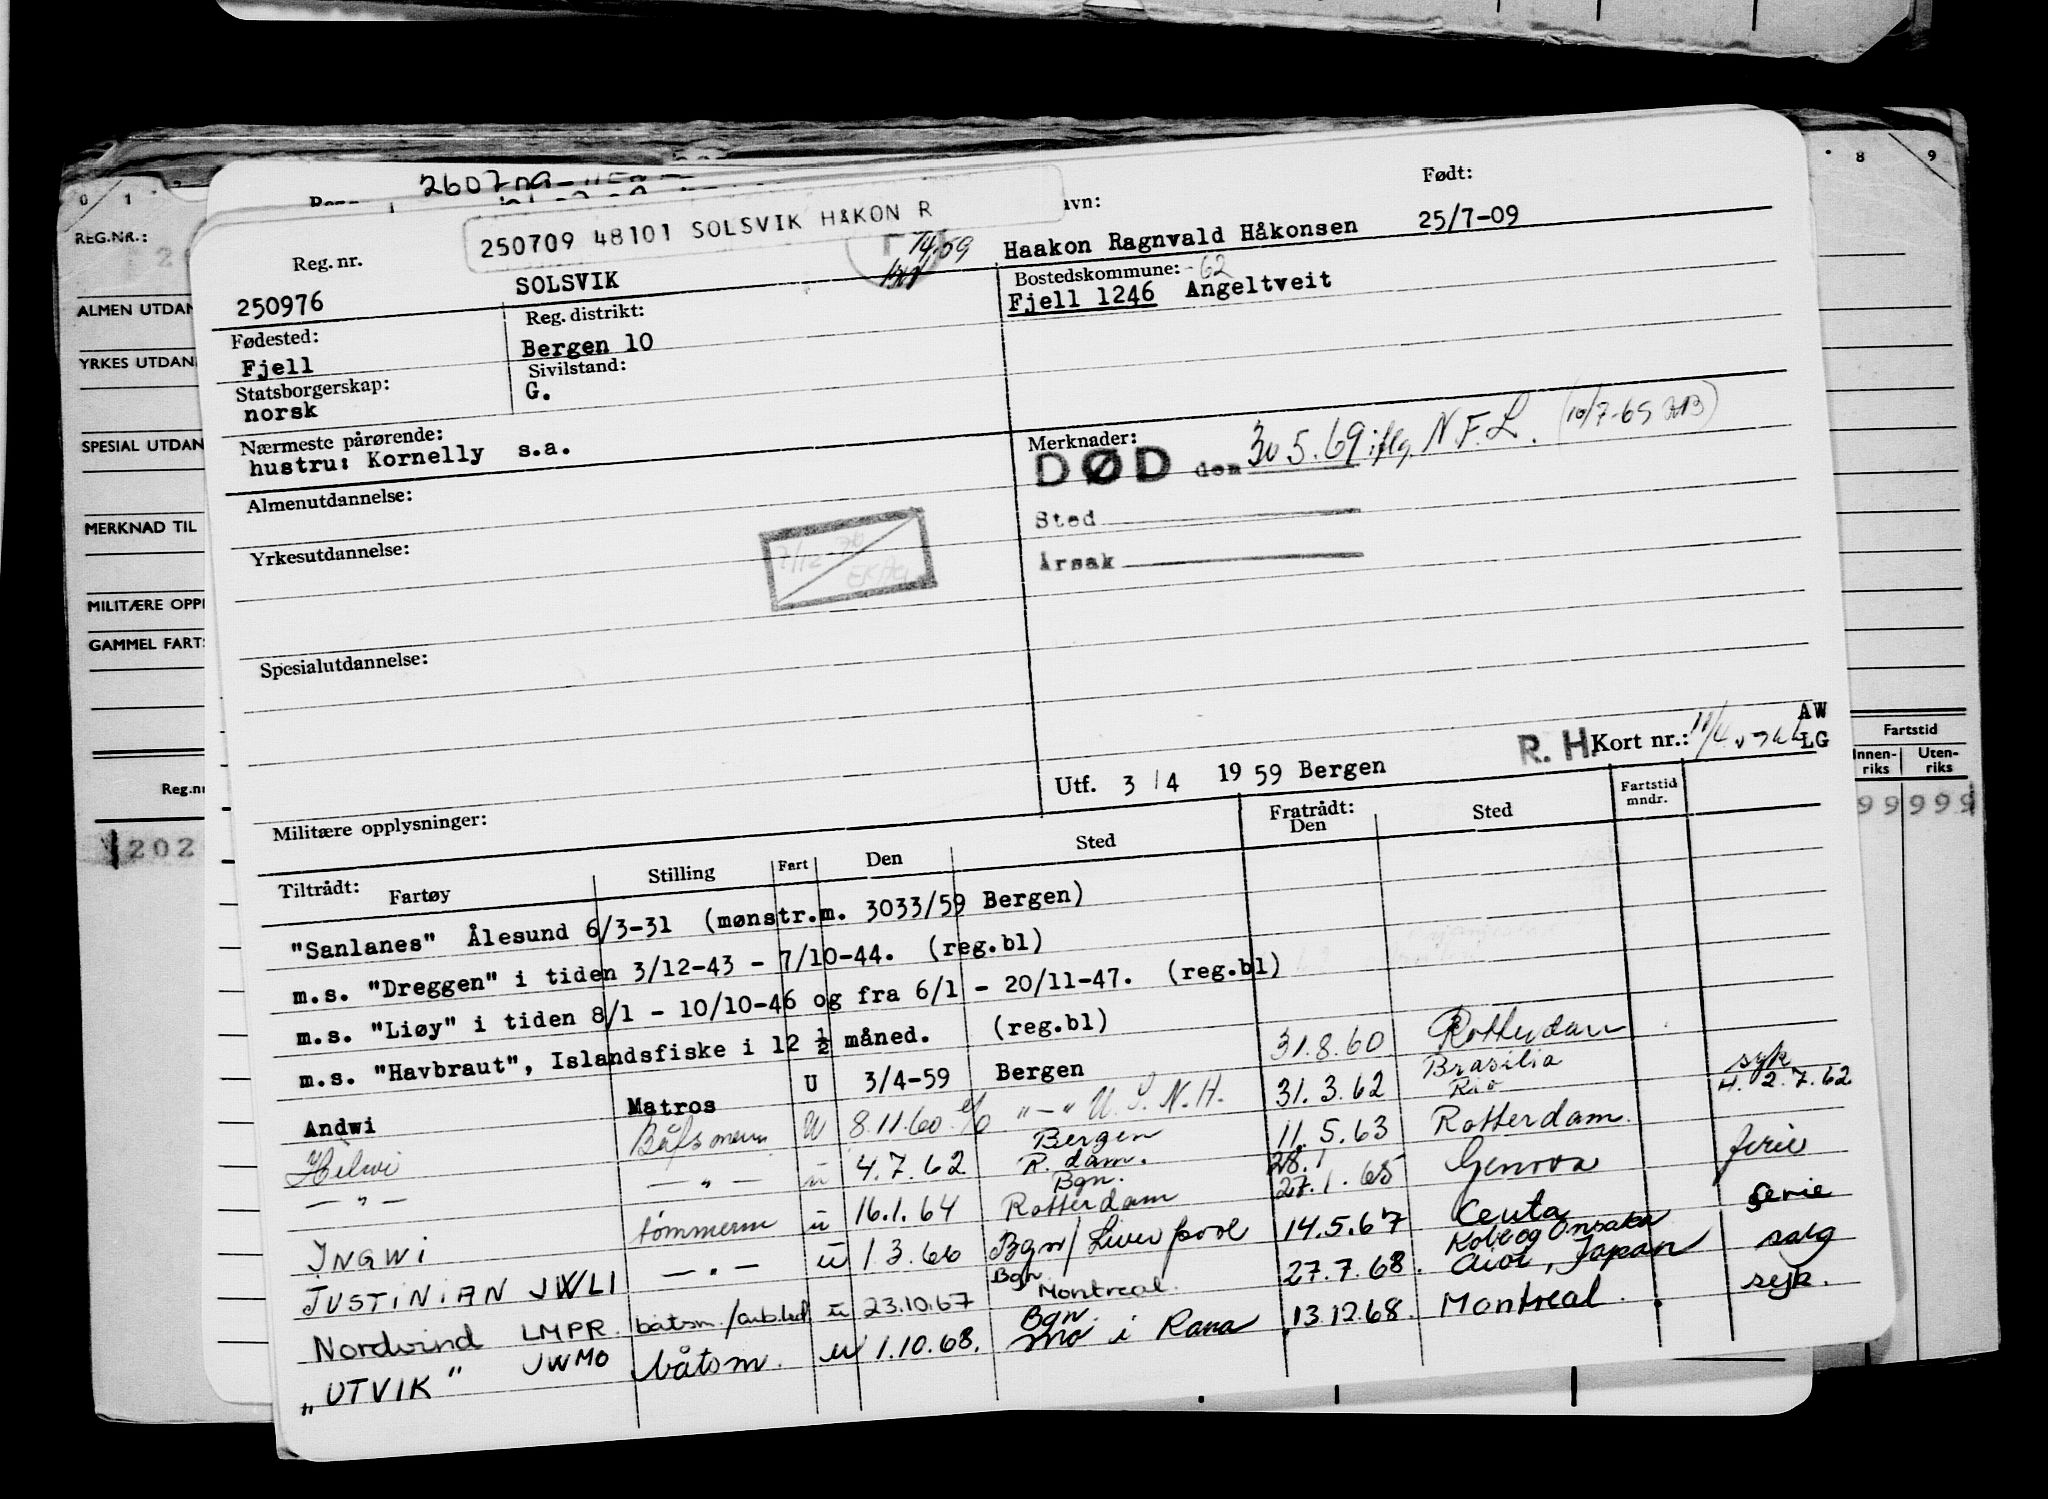 8 9
0 1
REG.NR.:
ALMEN UTDAN
YRKES UTDAN
SPESIAL UTDAN
MERKNAD TIL
MILITÆRE OPPL
GAMMEL FARTS
Reg.nr
202
Fartstid
Innen-riks Uten-riks
99 999
250709 48101 SOLSVIK HÅKON R
avn: Født:
Reg. nr. SOLSVIK Haakon Ragnvald Håkonsen 25/7-09
250976
Reg. distrikt: Bostedskommune: -62
Fødested: Bergen 10 Fjell 1246 Angeltveit
Fjell
Sivilstand:
Statsborgerskap: G.
norsk
Nærmeste pårørende:
hustru: Kornelly s.a.
Merknader:
DØD den 30 5.69 iflg. N.F.L. (10/7-69 )
Sted
Årsak
Almenutdannelse:
Yrkesutdannelse:
7/12-70
Spesialutdannelse:
AW
R. H. Kort nr.: LG
Utf. 3/4 1959 Bergen
Militære opplysninger:
Tiltrådt: Fartøy Stilling Fart Den Sted Fratrådt: Den Sted Fartstid mndr.
"Sanlanes" Ålesund 6/3-31 (mønstr.m. 3033/59 Bergen)
m.s. "Dreggen" i tiden 3/12-43 - 7/10-44. (reg.bl)
m.s. "Liøy" i tiden 8/1 - 10/10-46 og fra 6/1 - 20/11-47. (reg.bl)
m.s. "Havbraut", Islandsfiske i 12 ½ måned. (reg.bl)
Andwi Matros U 3/4-59 Bergen 31.8.60 Rotterdam
Hilwi Båtsmann U 8.11.60 "-" U.S.N.H. 31.3.62 Brasilia Rio syk H. 2.7.62
-"- -"- u 4.7.62 Bergen R. dam. 11.5.63 Rotterdam.
INGWI tømmerm u 16.1.64 Bgn. Rotterdam 28.1 27.1.65 Genova ferie
JUSTINIAN JWLI -"- u 1.3.66 Bgn/Liverpool 14.5.67 Ceuta ferie
Nordvind LMPR. båtsm./arb.led u 23.10.67 Bgn. Montreal. 27.7.68. Kobe og Aioi, Japan salg
"UTVIK" JWMO båtsm. u 1.10.68. Bgn. Mo i Rana 13.12.68. Montreal. syk.